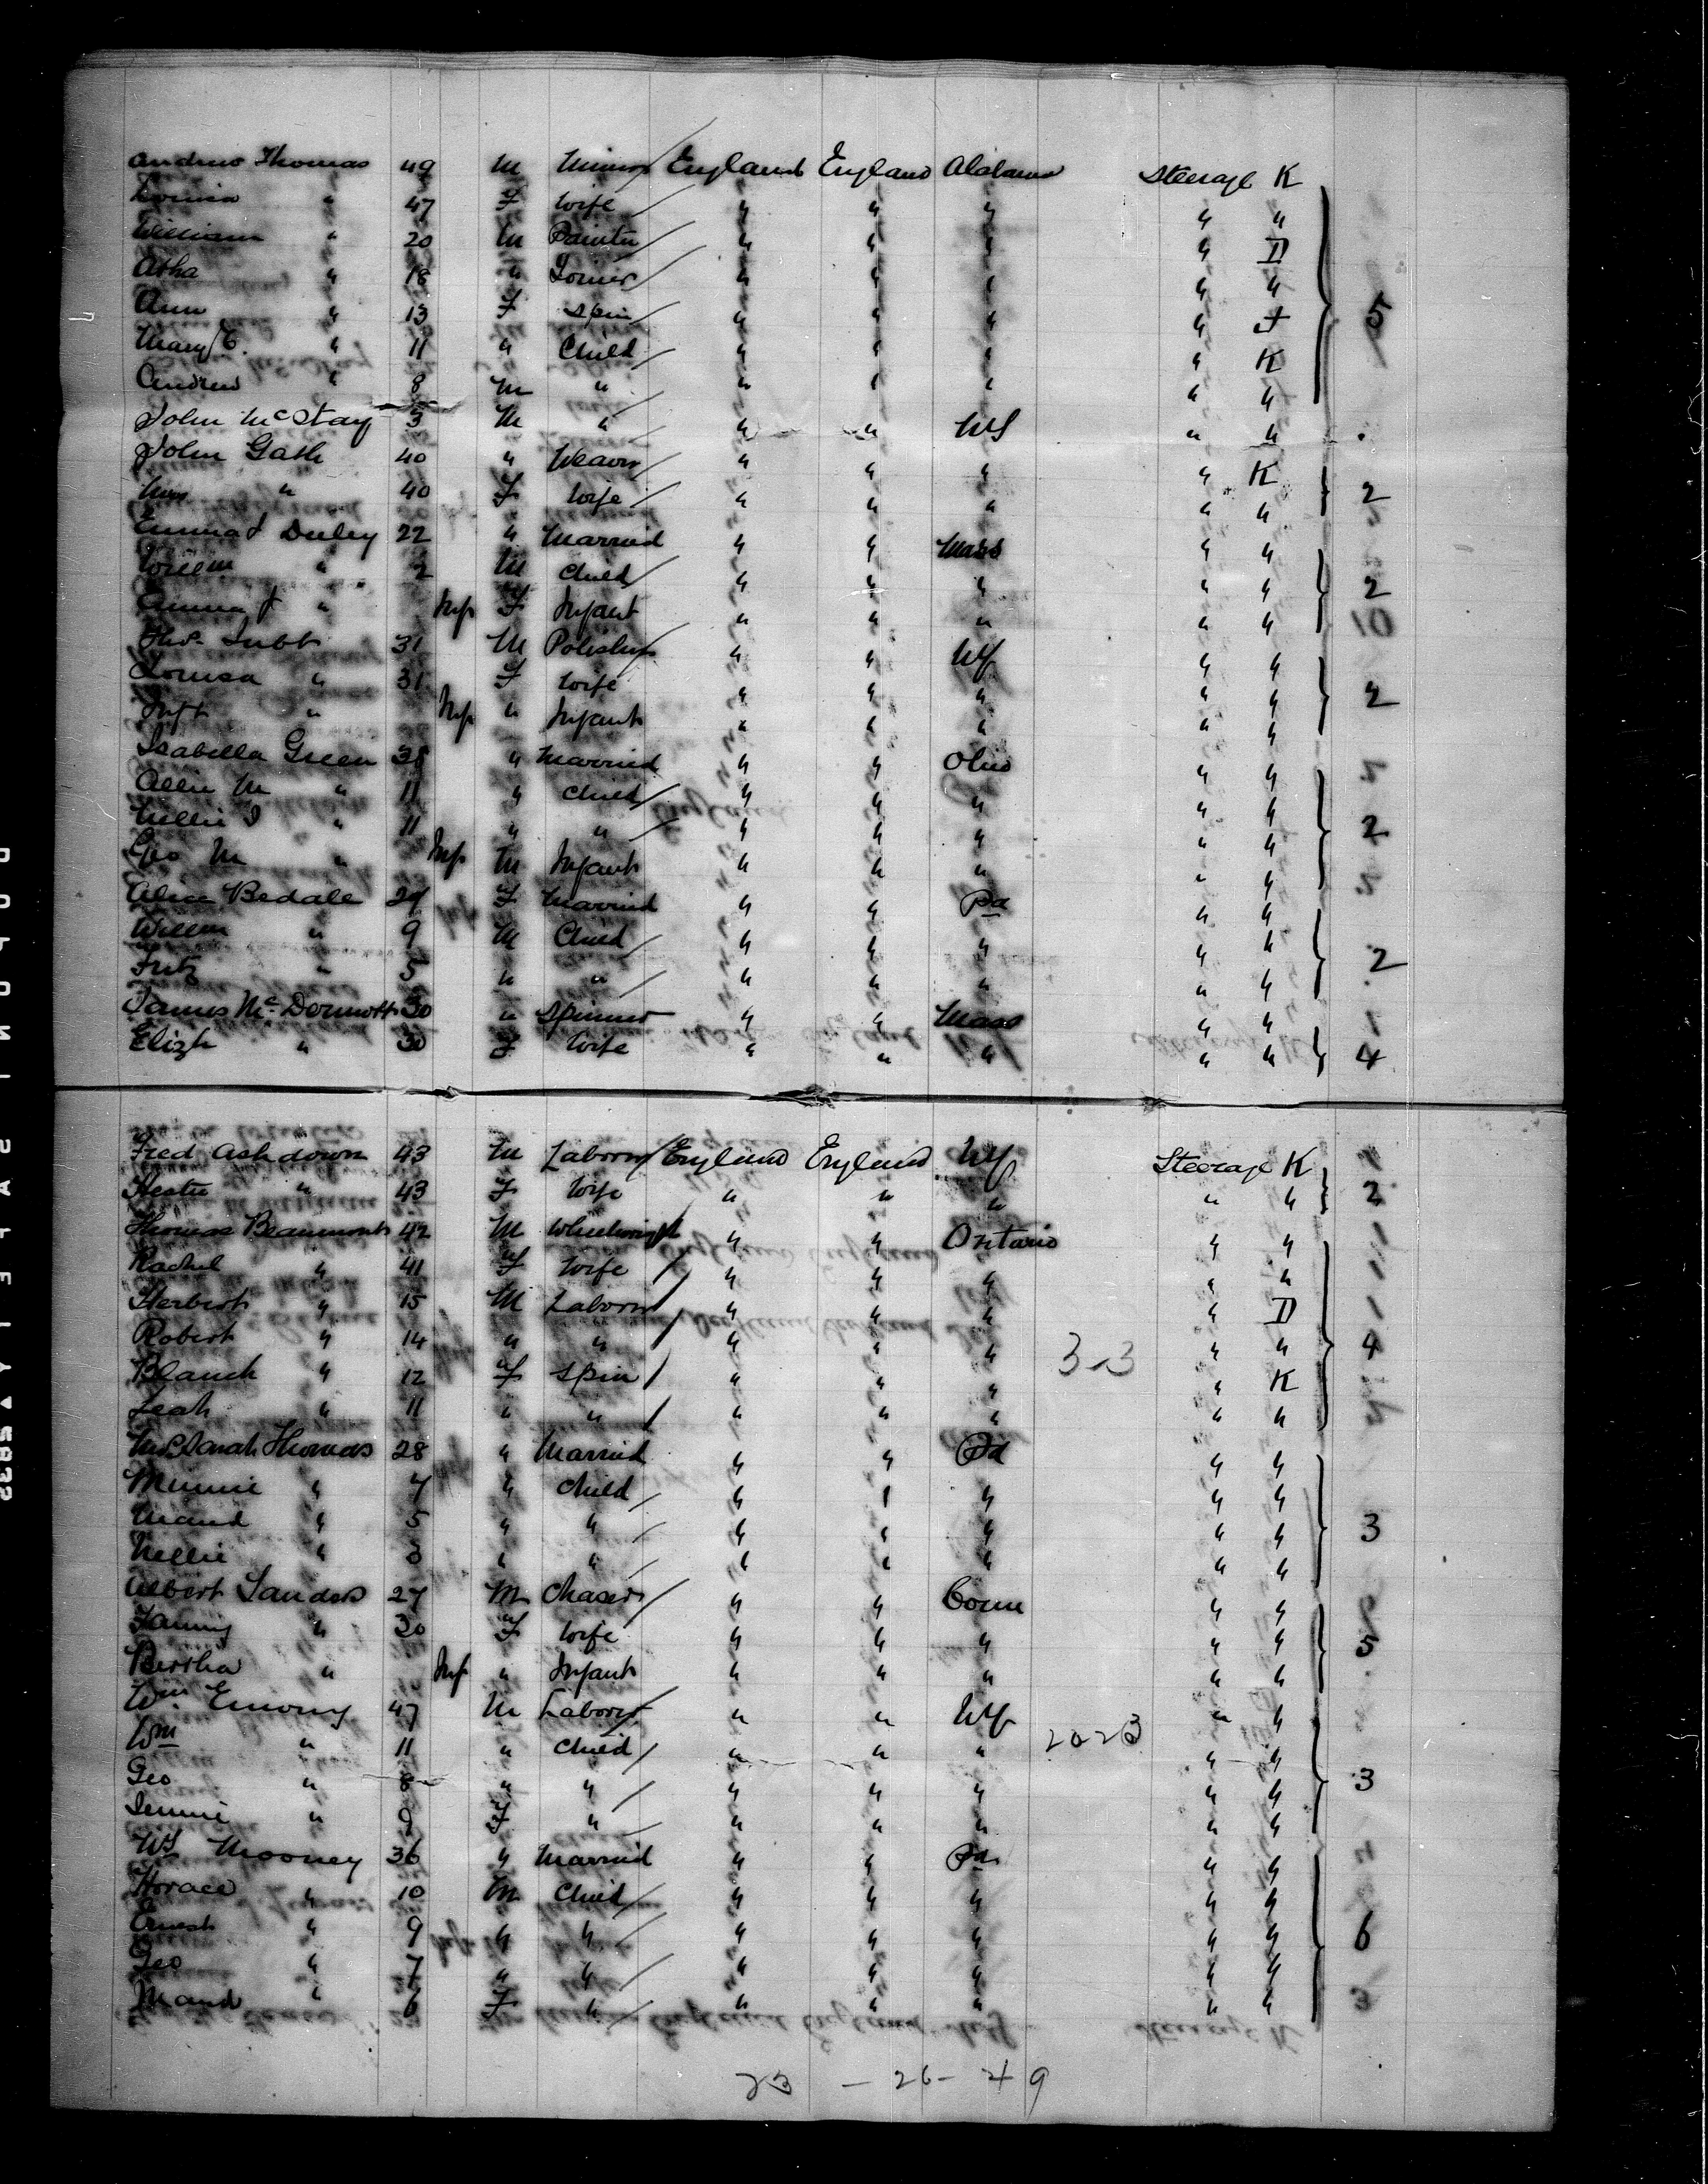 Andrew Thomas 49 M Miner England England Alabama Steerage K
Louisa " 47 F Wife " " " " "
William " 20 M Painter " " " " D
Atha " 18 " Joiner " " " " "
Ann " 13 F Spin " " " " F
Mary E. " 11 " Child " " " " K
Andrew " 8 M " " " " " "
5
John McStay 3 M " " " NY " "
John Gath 40 " Weaver " " " " K
Mrs " 40 F Wife " " " " "
2
Emma J Duley 22 " Married " " Mass " "
Willm " 2 M Child " " " " "
Emma J " Inf F Infant " " " " "
2
10
Thos. Tubb 31 M Polisher " " NY " "
Louisa " 31 F Wife " " " " "
Inft " Inf " Infant " " " " "
2
Isabella Green 38 " Married " " Ohio " "
Allie M " 11 " Child " " " " "
Nellie I " 11 " " " " " " "
Geo M " Inf M Infant " " " " "
2
Alice Bedale 29 F Married " " Pa " "
Willm " 9 M Child " " " " "
Fritz " 5 " " " " " " "
2
James McDermott 30 " Spinner " " Mass " "
Elizh " 30 F Wife " " " " "
4
Fred Ashdown 43 M Laborer England England NY Steerage K
Hester " 43 F Wife " " " " "
2
Thomas Beaumont 42 M Wheelwright " " Ontario " "
Rachel " 41 F Wife " " " " "
Herbert " 15 M Laborer " " " " D
Robert " 14 " " " " " 3-3 " "
4
Blanch " 12 F Spin " " " " K
Leah " 11 " " " " " " "
Mrs Sarah Thomas 28 " Married " " Pa " "
Minnie " 7 " Child " " " " "
Maud " 5 " " " " " " "
3
Nellie " 3 " " " " " " "
Albert Sanders 27 M Chaser " " Conn " "
Fanny " 20 F Wife " " " " "
5
Bertha " Inf " Infant " " " " "
Wm Emony 47 M Laborer " " NY " "
Wm " 11 " Child " " " 2023 " "
Geo " 8 " " " " " " "
3
Jennie " 9 F " " " " " "
Mooney 36 " Married " " Pa " "
Horace " 10 M Child " " " " "
Ernest " 9 " " " " " " "
6
Geo " 7 " " " " " " "
Maud " 6 F " " " " " "
23 - 26 - 49